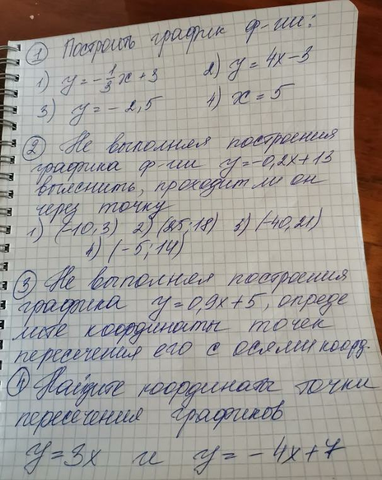 ① Построить график ф-ии:
1) y = -1/3 x + 3   2) y = 4x - 3
3) y = - 2,5   4) x = 5
② Не выполняя построения
графика ф-ии y = -0,2x + 13
выяснить, проходит ли он
через точку
1) (-10; 3) 2) (25; 18) 3) (-40; 21)
4) (-5; 14)
③ Не выполняя построения
графика y = 0,9x + 5, опреде
лите координаты точек
пересечения его с осями коорд.
④ Найдите координаты точки
пересечения графиков
y = 3x и y = - 4x + 7